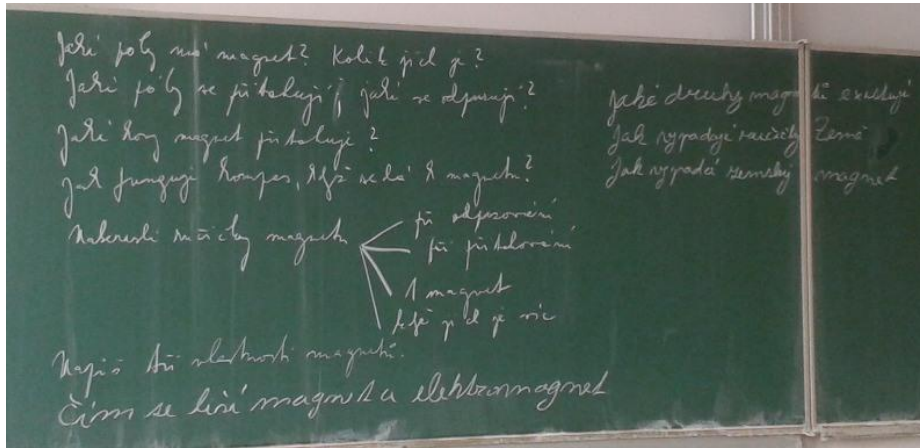 Jaké póly má magnet? Kolik jich je?
Jaké póly se přitahují, jaké se odpuzují?
Jaké kovy magnet přitahuje?
Jak funguje kompas, když se dá k magnetu?
Nakresli siločáry magnetu
při odpuzování
při přitahování
1 magnet
když jich je víc
Napiš tři vlastnosti magnetů.
Čím se liší magnet a elektromagnet
Jaké druhy magnetů existují
Jak vypadají Země
Jak vypadá zemský magnet